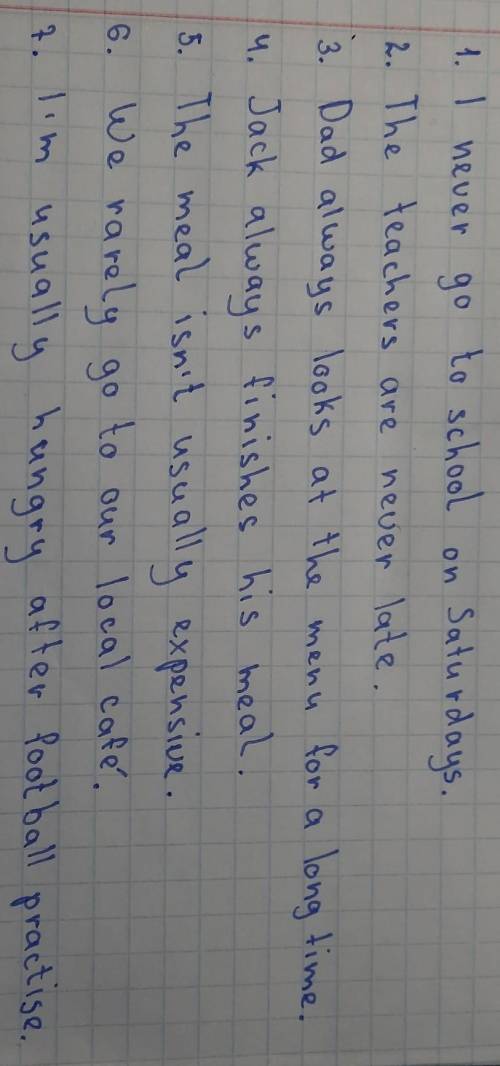 1. I never go to school on Saturdays.
2. The teachers are never late.
3. Dad always looks at the menu for a long time.
4. Jack always finishes his meal.
5. The meal isn't usually expensive.
6. We rarely go to our local café.
7. I'm usually hungry after football practise.